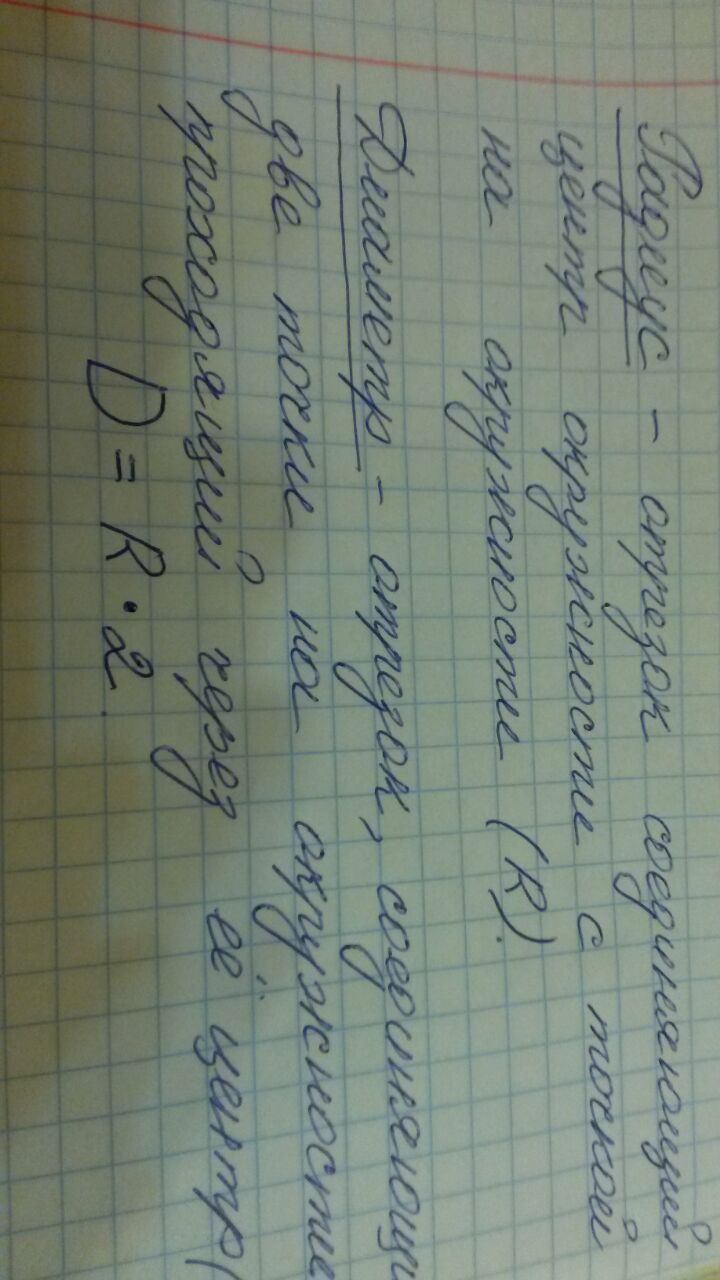 Радиус - отрезок соединяющий
центр окружности с точкой
на окружности (R).
Диаметр - отрезок, соединяющи
две точки на окружности
проходящий через её центр(
D = R · 2.